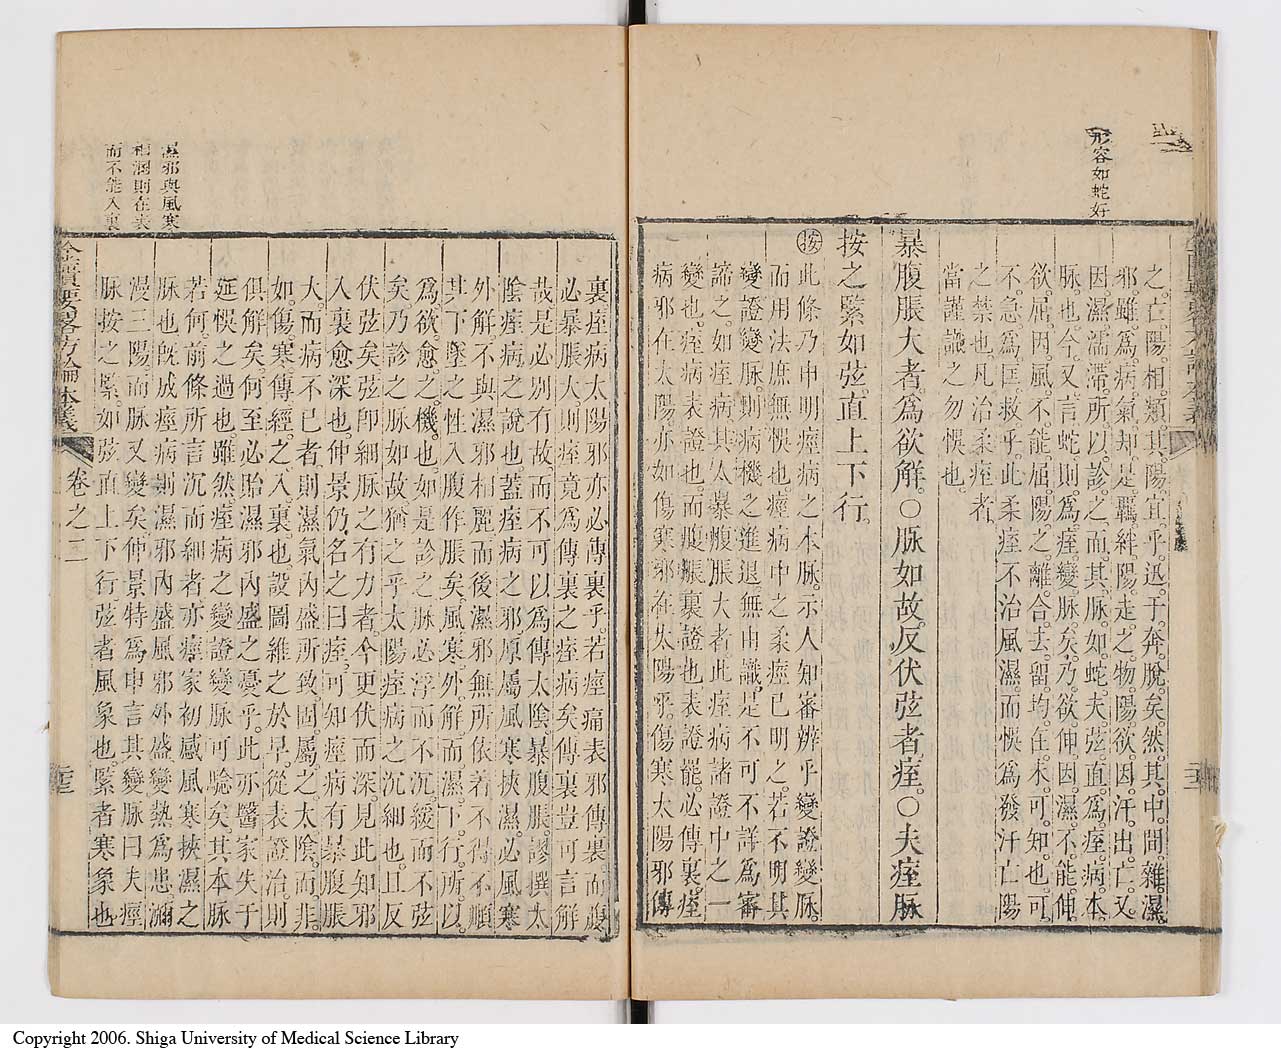 形容如蛇好
之亡陽相類其陽宜乎迅于奔脫矣然其中間雜濕
邪雖爲病氣却是羈絆陽走之物陽欲因汗出亡又
因濕濡滯所以診之而其脉如蛇夫弦直爲痓病本
脉也今又言蛇則爲痓變脉矣乃欲伸因濕不能伸
欲屈因風不能屈陽之離合去留均在未可知也可
不急爲匡救乎此柔痓不治風濕而悞爲發汗亡陽
之禁也凡治柔痓者
當謹識之勿悞也
暴腹脹大者爲欲解○脉如故反伏弦者痓○夫痓脉
按之緊如弦直上下行
按此條乃申明痓病之本脉示人知審辨乎變證變脉
而用法庶無悞也痓病中之柔痓已明之若不明其
變證變脉則病機之進退無由識是不可不詳爲審
諦之如痓病其人暴腹脹大者此痓病諸證中之一
變也痓病表證也而腹脹裏證也表證罷必傳裏痓
病邪在太陽亦如傷寒邪在太陽乎傷寒太陽邪傳
裏痓病太陽邪亦必傳裏乎若痓病表邪傳裏而腹
必暴脹大則痓竟爲傳裏之痓病矣傳裏豈可言解
哉是必別有故而不可以爲傳太陰暴腹脹謬撰太
陰痓病之說也蓋痓病之邪原屬風寒挾濕必風寒
外解不與濕邪相麗而後濕邪無所依着不得不順
其下墜之性入腹作脹矣風寒外解而濕下行所以
爲欲愈之機也如是診之脉必浮而不沉緩而不弦
矣乃診之脉如故猶之乎太陽痓病之沉細也且反
伏弦矣弦卽細脉之有力者今更伏而深見此知邪
入裏愈深也仲景仍名之曰痓可知痓病有暴腹脹
大而病不已者則濕氣內盛所致固屬之太陰而非
如傷寒傳經之入裏也設圖維之於早從表證治則
俱解矣何至必貽濕邪內盛之憂乎此亦醫家失于
延悞之過也雖然痓病之變證變脉可騐矣其本脉
若何前條所言沉而細者亦痓家初感風寒挾濕之
脉也旣成痓病則濕邪內盛風邪外盛變熱爲患瀰
漫三陽而脉又變矣仲景特爲申言其變脉曰夫痓
脉按之緊如弦直上下行弦者風象也緊者寒象也
濕邪與風寒
相溷則在表
而不能入裏
金匱要畧方論本義
卷之二
Copyright 2006. Shiga University of Medical Science Library